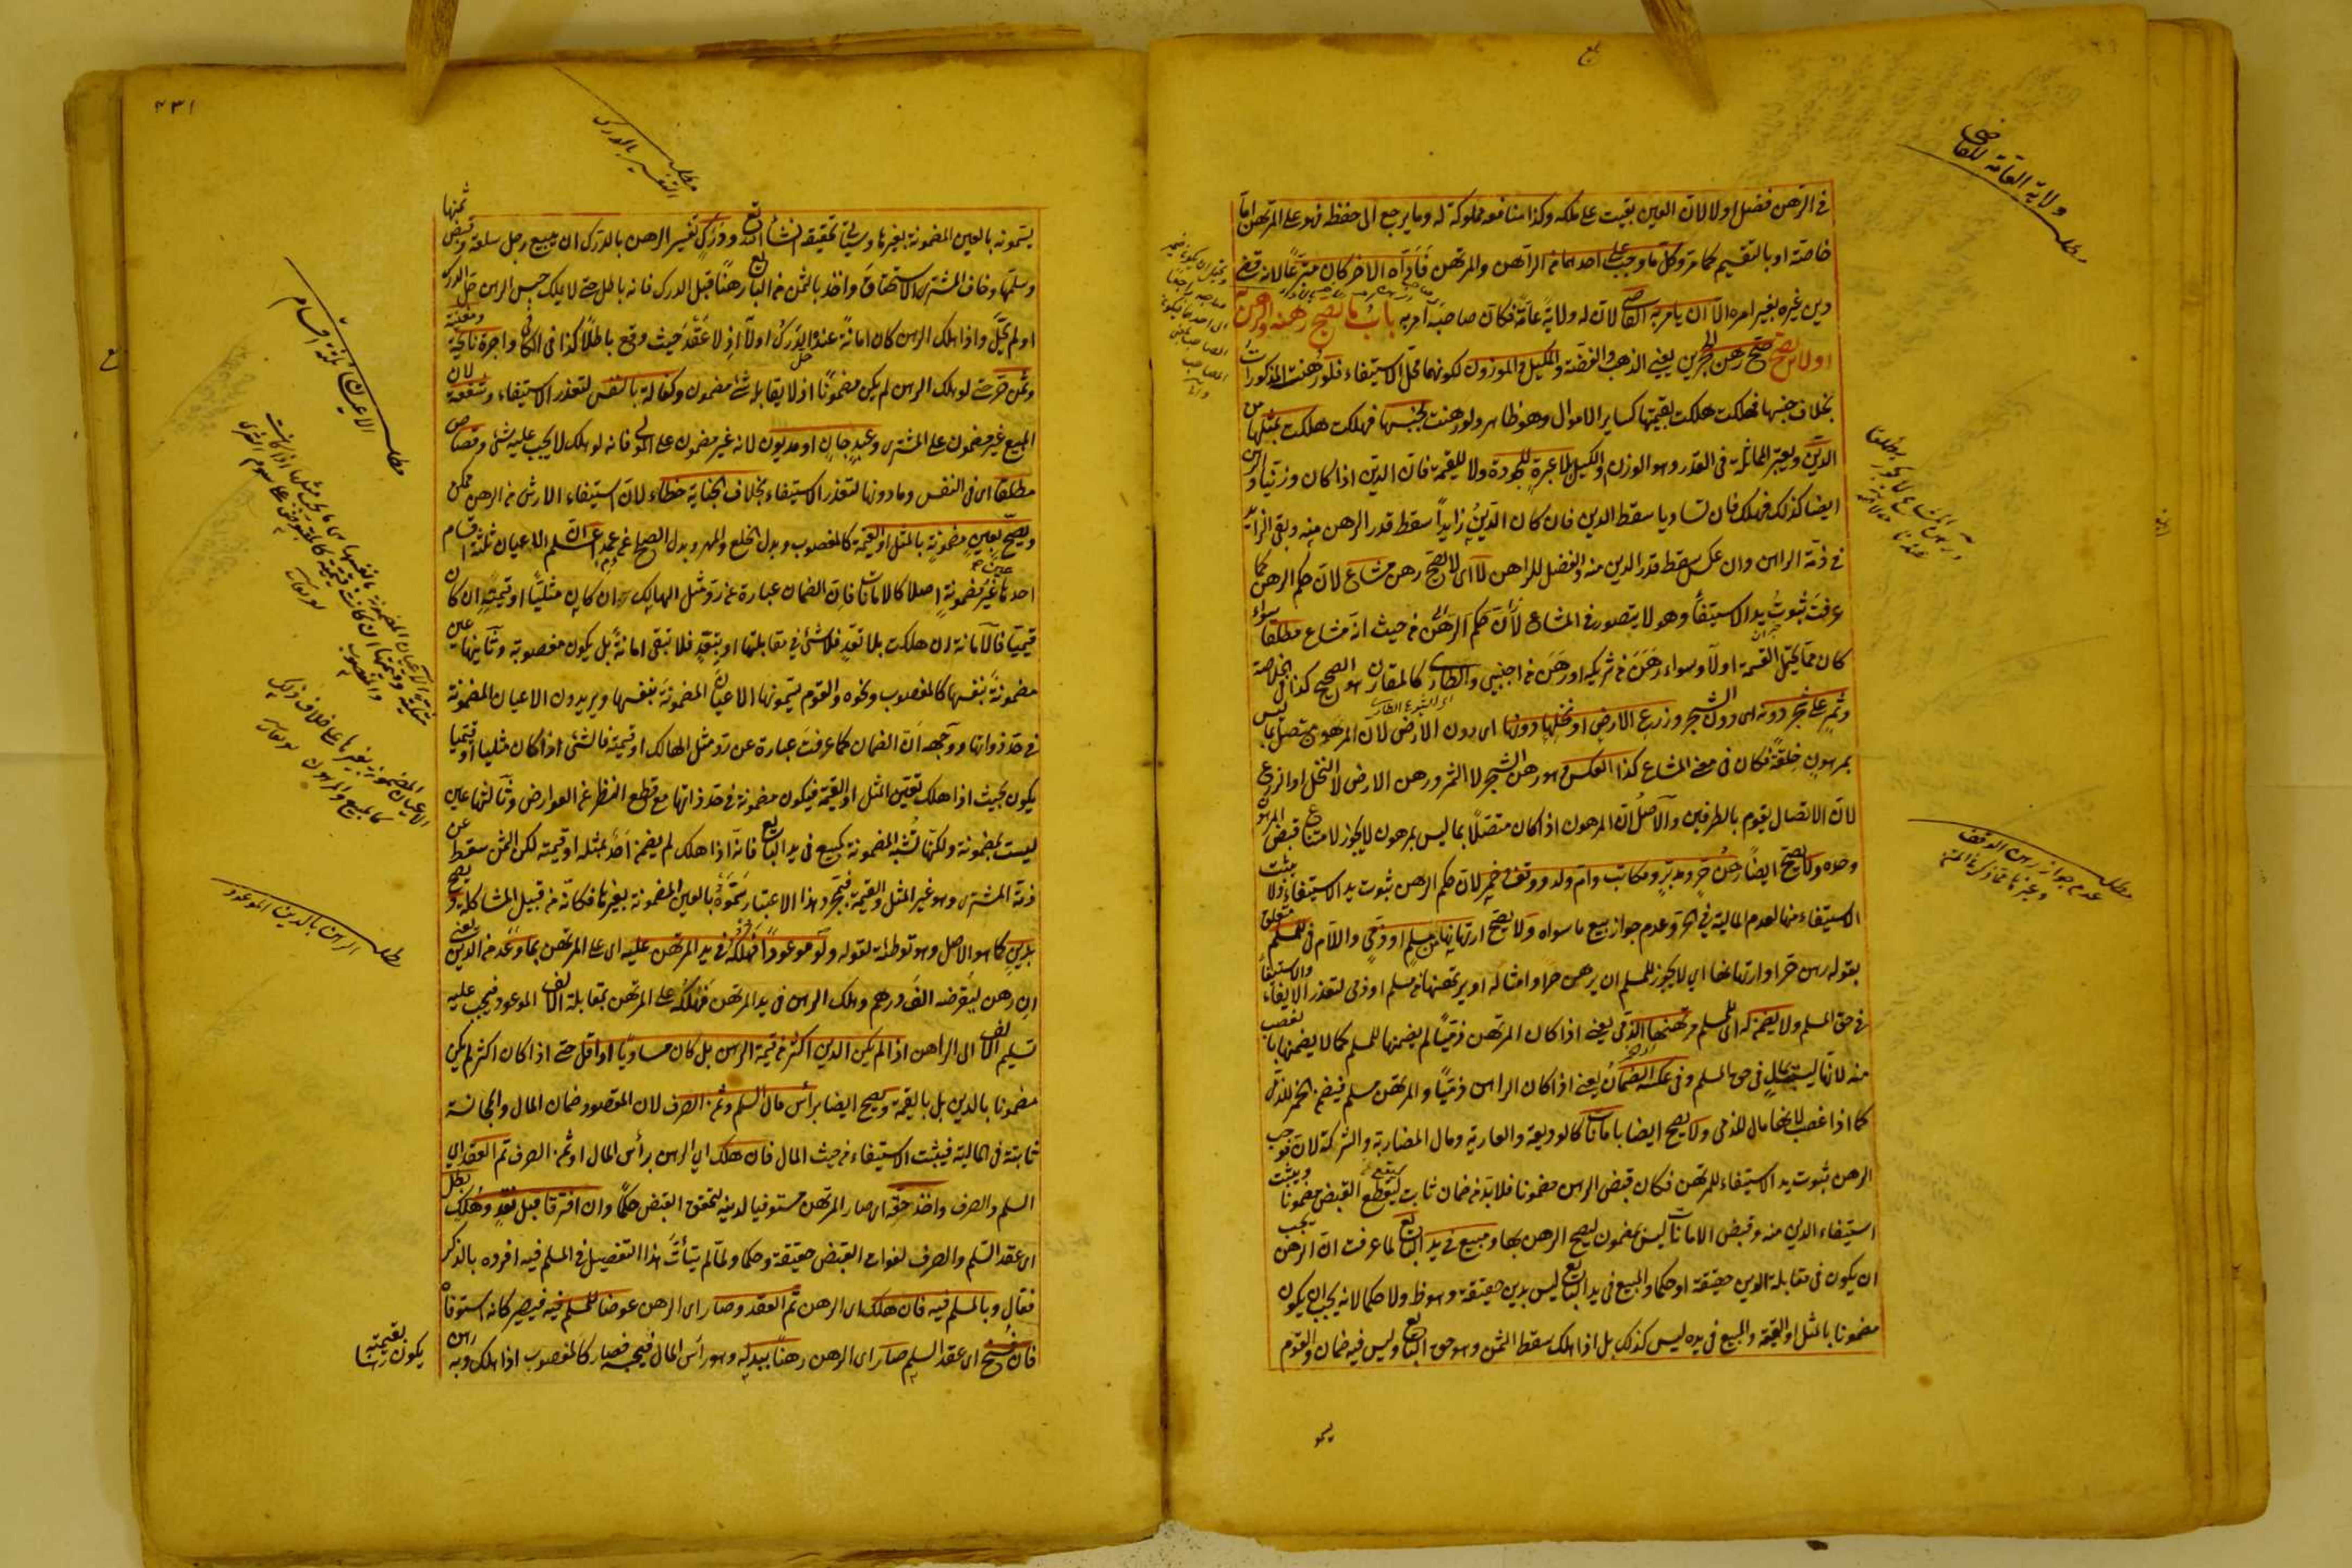 في الرهن فضل اولا لان العين بقيت على ملكه وكذا منافعه مملوكة له وما يرجع الى حفظه فهو على المرتهن اما
خاصة او بالتقسيم كما مر وكل ما وجب على احدهما من الراهن والمرتهن فاداه الاخر كان متبرعا لانه قضى
دين غيره بغير امره الا ان يامر به القاضي لان له ولاية عامة فكان صاحبه امر به باب ما يصح رهنه والرهن به
او لا يصح صح رهن الحجرين يعني الذهب والفضة والمكيل والموزون لكونهما محل الاستيفاء فلو رهنت المذكورات
بخلاف جنسها فهلكت هلكت بقيمتها كساير الاموال وهو ظاهر ولو رهنت بجنسها فهلكت هلكت بمثلها من
الدين ويعتبر المماثلة في القدر وهو الوزن والكيل بلا عبرة للجودة ولا للقيمة فان الدين اذا كان وزنيا والرهن
ايضا كذلك فهلك فان تساويا سقط الدين فان كان الدين زايدا سقط قدر الرهن منه وبقي الزايد
في ذمة الراهن وان عكس سقط قدر الدين منه والفضل للراهن لا اي لا يصح رهن مشاع لان حكم الرهن كما
عرفت ثبوت يد الاستيفاء وهو لا يتصور في المشاع لان حكم الرهن من حيث انه مشاع مطلقا سواء
كان مما يحتمل القسمة اولا وسواء رهن من شريكه او رهن من اجنبي والطاري كالمقارن هو الصحيح كذا في الخلاصة
وثمر على شجر دونه اي دون الشجر وزرع الارض او نخلها دونها اي دون الارض لان المرهون متصل بما ليس
بمرهون خلقة فكان في معنى المشاع كذا العكس هو رهن الشجر لا الثمر ورهن الارض لا النخل او الزرع
لان الاتصال يقوم بالطرفين والاصل ان المرهون اذا كان متصلا بما ليس بمرهون لا يجوز لامتناع قبض المرهون
وحده ولا يصح ايضا رهن حر ومدبر ومكاتب وام ولد ووقف وخمر لان حكم الرهن ثبوت يد الاستيفاء ولا يثبت
الاستيفاء منها لعدم المالية في الحر وعدم جواز بيع ما سواه ولا يصح ارتهانها من مسلم او ذمي واللام في للمسلم متعلق
بقوله رهن خمر او ارتهانها اي لا يجوز للمسلم ان يرهن خمرا وامثاله او يرتهنها من مسلم او ذمي لتعذر الايفاء والاستيفاء
في حق المسلم ولا يضمن له اي للمسلم مرتهنها الذمي يعني اذا كان المرتهن ذميا لم يضمنها للمسلم كما لا يضمنها بالغصب
منه لانها ليست بمال في حق المسلم وفي عكسه الضمان يعني اذا كان الراهن ذميا والمرتهن مسلم فيضمن الخمر للذمي
كما اذا غصب لانها مال للذمي ولا يصح ايضا بامانات كالوديعة والعارية ومال المضاربة والشركة لان موجب
الرهن ثبوت يد الاستيفاء للمرتهن فكان قبض الرهن مضمونا فلا بد من ضمان ثابت ليقع القبض مضمونا ويثبت
استيفاء الدين منه وقبض الامانات ليس بمضمون ليصح الرهن بها ومبيع في يد البائع لما عرفت ان الرهن يجب
ان يكون في مقابلة الدين حقيقة او حكما والمبيع في يد البائع ليس بدين حقيقة وهو ظ ولا حكما لانه يجب ان يكون
مضمونا بالمثل او القيمة والمبيع في يده ليس كذلك بل اذا هلك سقط الثمن وهو حق البائع وليس فيه ضمان والقوم
مطلب ولاية العامة للقاضي
مطلب عدم جواز رهن الوقف
٢٣١
يسمونه بالعين المضمونة بغيرها وسياتي تحقيقه ان شاء الله تع ودرك تفسير الرهن بالدرك ان يبيع رجل سلعة وقبض ثمنها
وسلمها وخاف المشتري الاستحقاق واخذ بالثمن من البائع رهنا قبل الدرك فانه باطل حتى لا يملك حبس الرهن حل الدرك
او لم يحل واذا هلك الرهن كان امانة عنده حل الدرك اولا اذ لا عقد حيث وقع باطلا كذا في الكافي واجرة نائحة ومغنية
وثمن حر حتى لو هلك الرهن لم يكن مضمونا اذ لا يقابله شئ مضمون وكفالة بالنفس لتعذر الاستيفاء وشفعة لان
المبيع غير مضمون على المشتري وعبد جان او مديون لانه غير مضمون على المولى فانه لو هلك لا يجب عليه شئ وقصاص
مطلقا اي في النفس وما دونها لتعذر الاستيفاء بخلاف الجناية خطاء لان استيفاء الارش من الرهن ممكن
ويصح بعين مضمونة بالمثل او القيمة كالمغصوب وبدل الخلع والمهر وبدل الصلح عن دم عمد اعلم ان الاعيان ثلثة اقسام
احدها عين غير مضمونة اصلا كالامانات فان الضمان عبارة عن رد مثل الهالك ان كان مثليا او قيمته ان كان
قيميا فالامانة ان هلكت بلا تعد فلا شئ في مقابلتها او بتعد فلا تبقى امانة بل يكون مغصوبة وثانيها عين
مضمونة بنفسها كالمغصوب ونحوه والقوم يسمونها الاعيان المضمونة بنفسها ويريدون الاعيان المضمونة
في حد ذواتها ووجهه ان الضمان كما عرفت عبارة عن رد مثل الهالك او قيمته فالشئ اذا كان مثليا او قيميا
يكون بحيث اذا هلك تعين المثل او القيمة فيكون مضمونة في حد ذاتها مع قطع النظر عن العوارض وثالثها عين
ليست بمضمونة ولكنها تشبه المضمونة كمبيع في يد البائع فانه اذا هلك لم يضمن احد بمثله او قيمته لكن الثمن سقط عن
ذمة المشتري وهو غير المثل والقيمة فبمجرد هذا الاعتبار سموه بالعين المضمونة بغيرها فكانه من قبيل المشاكلة ويصح
بدين كما هو الاصل وهو توطئة لقوله ولو موعودا فهلكه في يد المرتهن عليه اي على المرتهن بما وعد من الدين يعني
ان رهن ليقرضه الف درهم وهلك الرهن في يد المرتهن فهلكه على المرتهن بمقابلة الالف الموعود فيجب عليه
تسليم الالف الى الراهن اذا لم يكن الدين اكثر من قيمة الرهن بل كان مساويا او اقل حتى اذا كان اكثر لم يكن
مضمونا بالدين بل بالقيمة ويصح ايضا براس مال السلم وثمن الصرف لان المقصود ضمان المال والمجانسة
ثابتة في المالية فيثبت الاستيفاء من حيث المال فان هلك اي الرهن براس المال او ثمن الصرف تم العقد اي
السلم والصرف واخذ حقه اي صار المرتهن مستوفيا لدينه لتحقق القبض حكما وان افترقا قبل نقد وهلك بطل
اي عقد السلم والصرف لفوات القبض حقيقة وحكما ولما لم يتأت هذا التفصيل في المسلم فيه افرده بالذكر
فقال وبالمسلم فيه فان هلك اي الرهن تم العقد وصار اي الرهن عوضا للمسلم فيه فيصير كانه استوفاه
فان فسخ اي عقد السلم صار اي الرهن رهنا ببدله وهو راس المال فيحبسه فصار كالمغصوب اذا هلك وبه رهن
يكون رهنا بقيمته
مطلب التفسير بالدرك
مطلب الاعيان ثلثة اقسام
مطلب الرهن بالدين الموعود